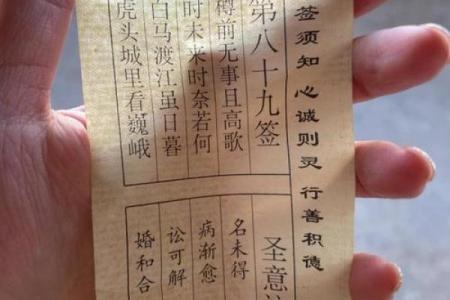 签须知 心诚则灵 行善积德
第八十九签
樽前无事且高歌
时未来时奈若何
白马渡江虽日暮
虎头城里看巍峨
圣意
名未得
病渐愈
讼可解
婚和合